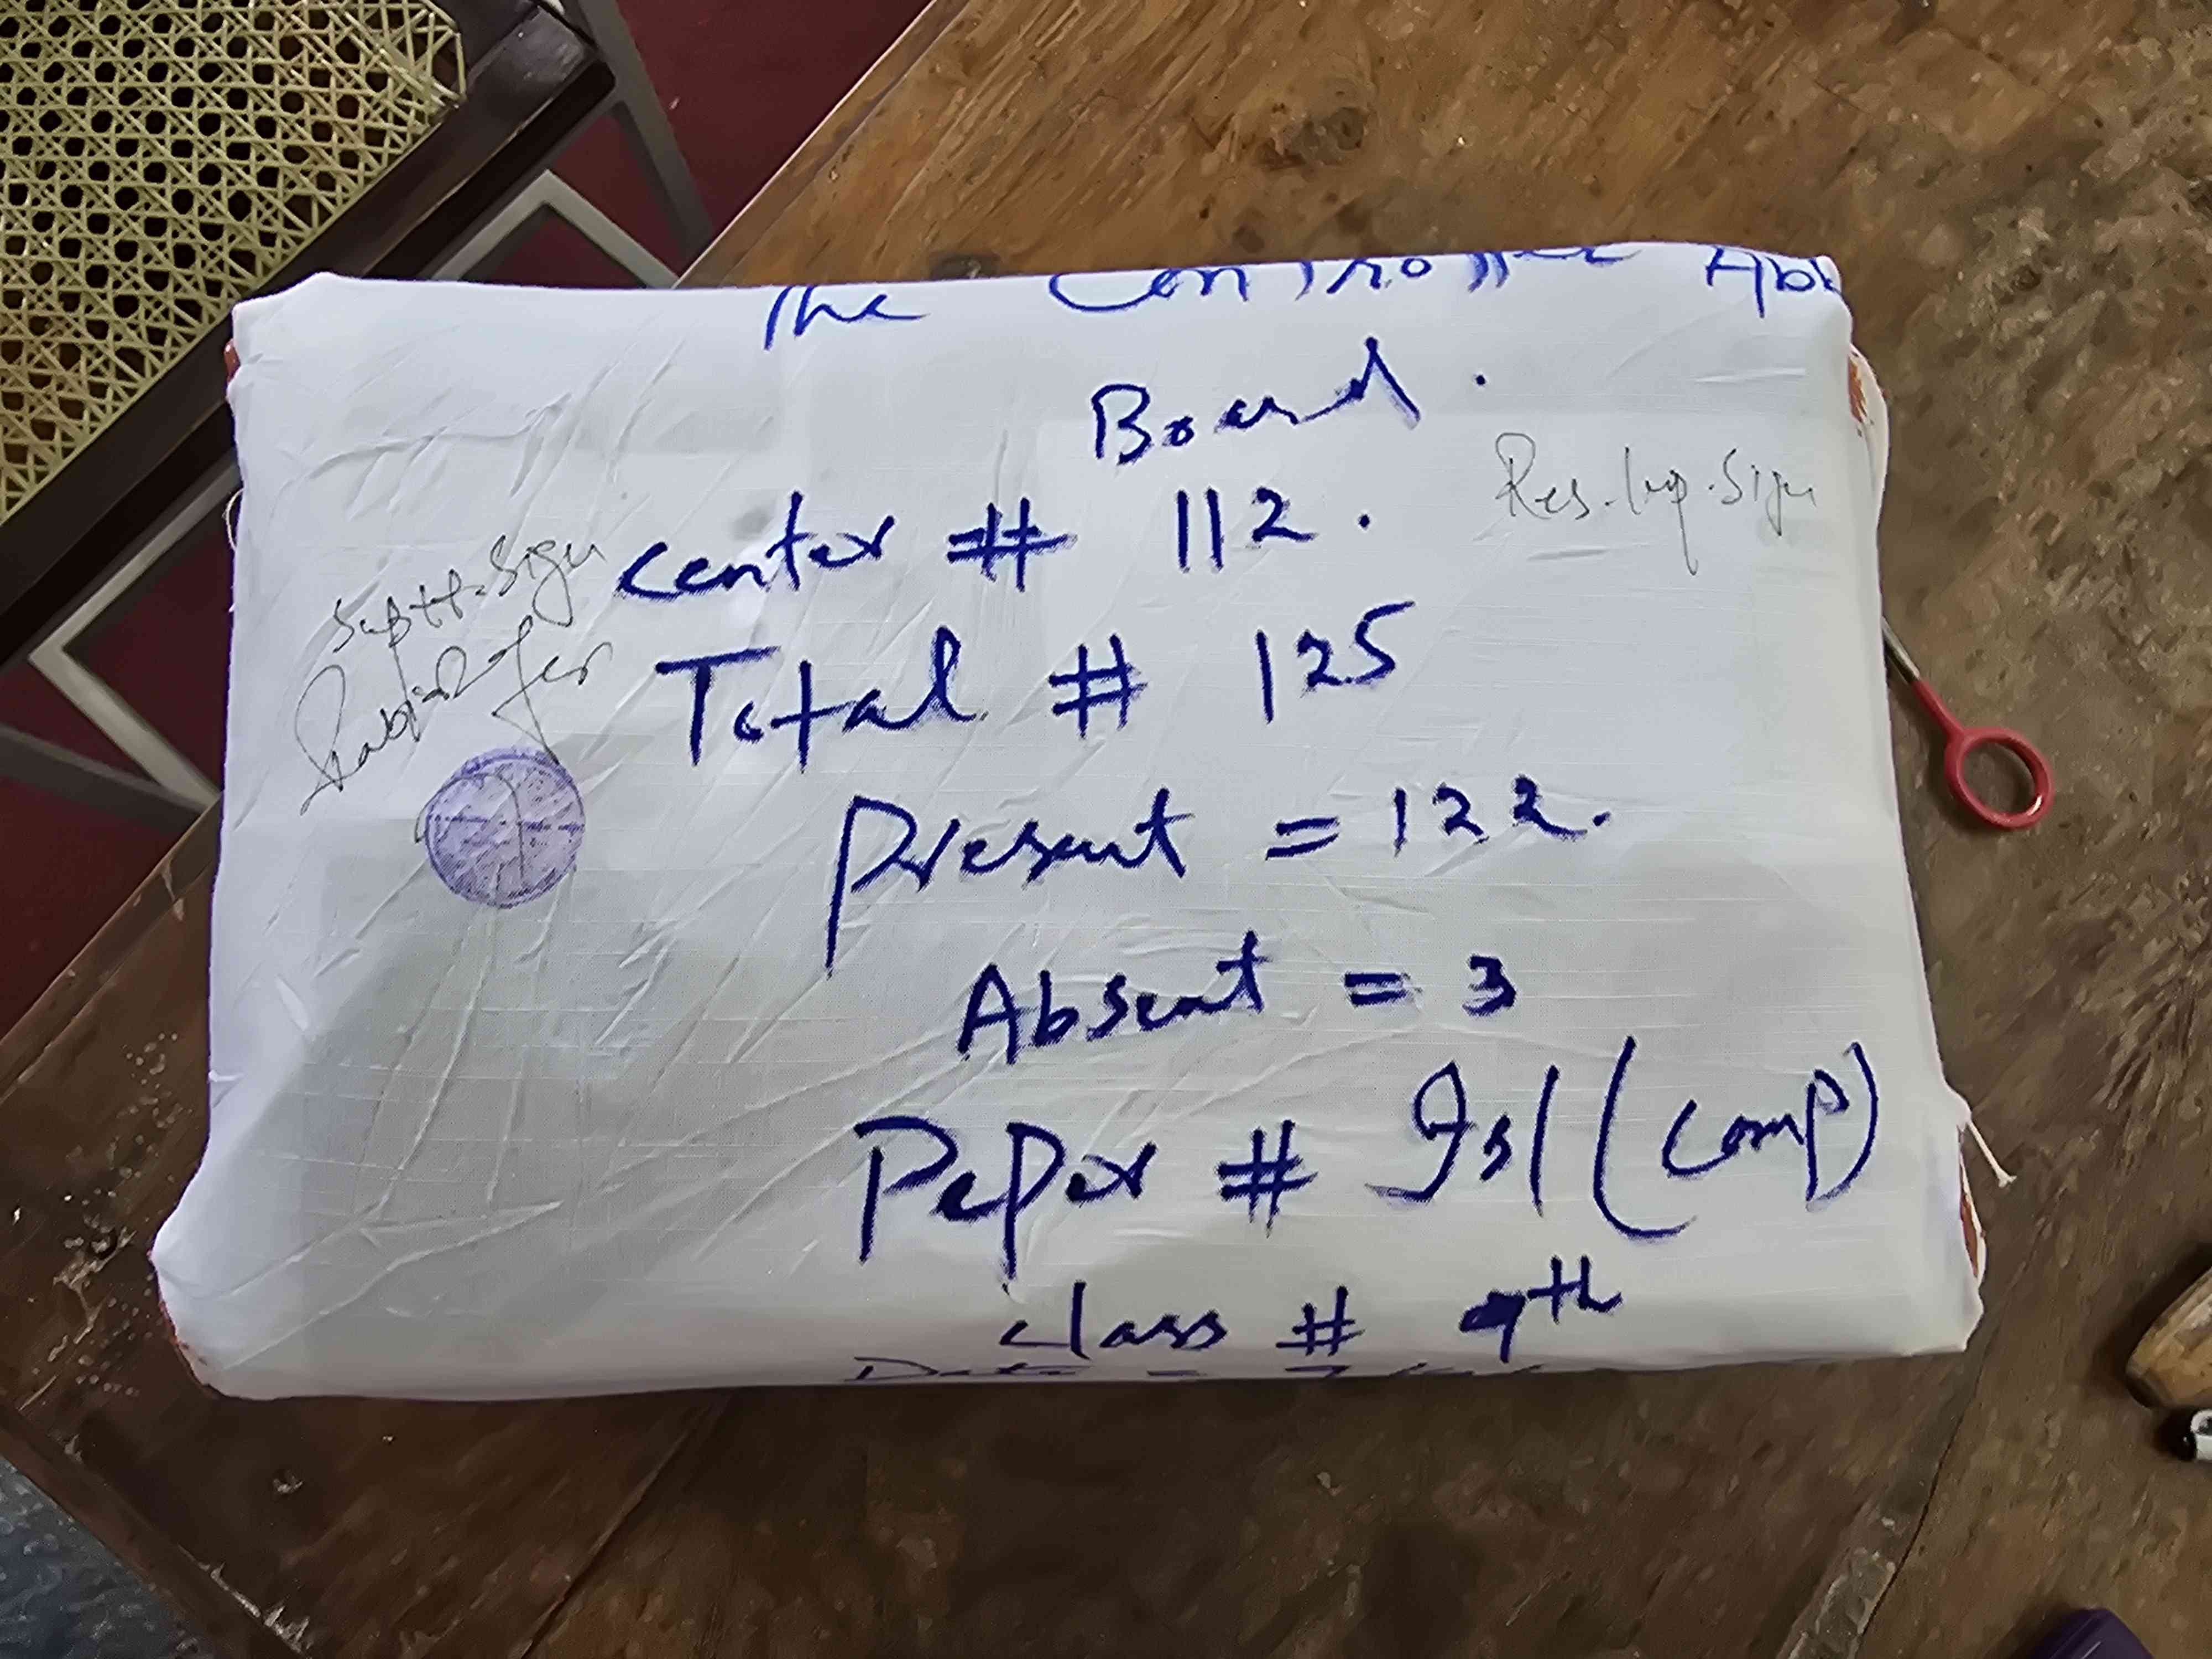 The Controller Abb
Board.
Res. Insp. Sign
Suptt. Sign
center # 112.
Total # 125
Present = 122.
Absent = 3
Paper # Isl (comp)
class # 9th
Date =